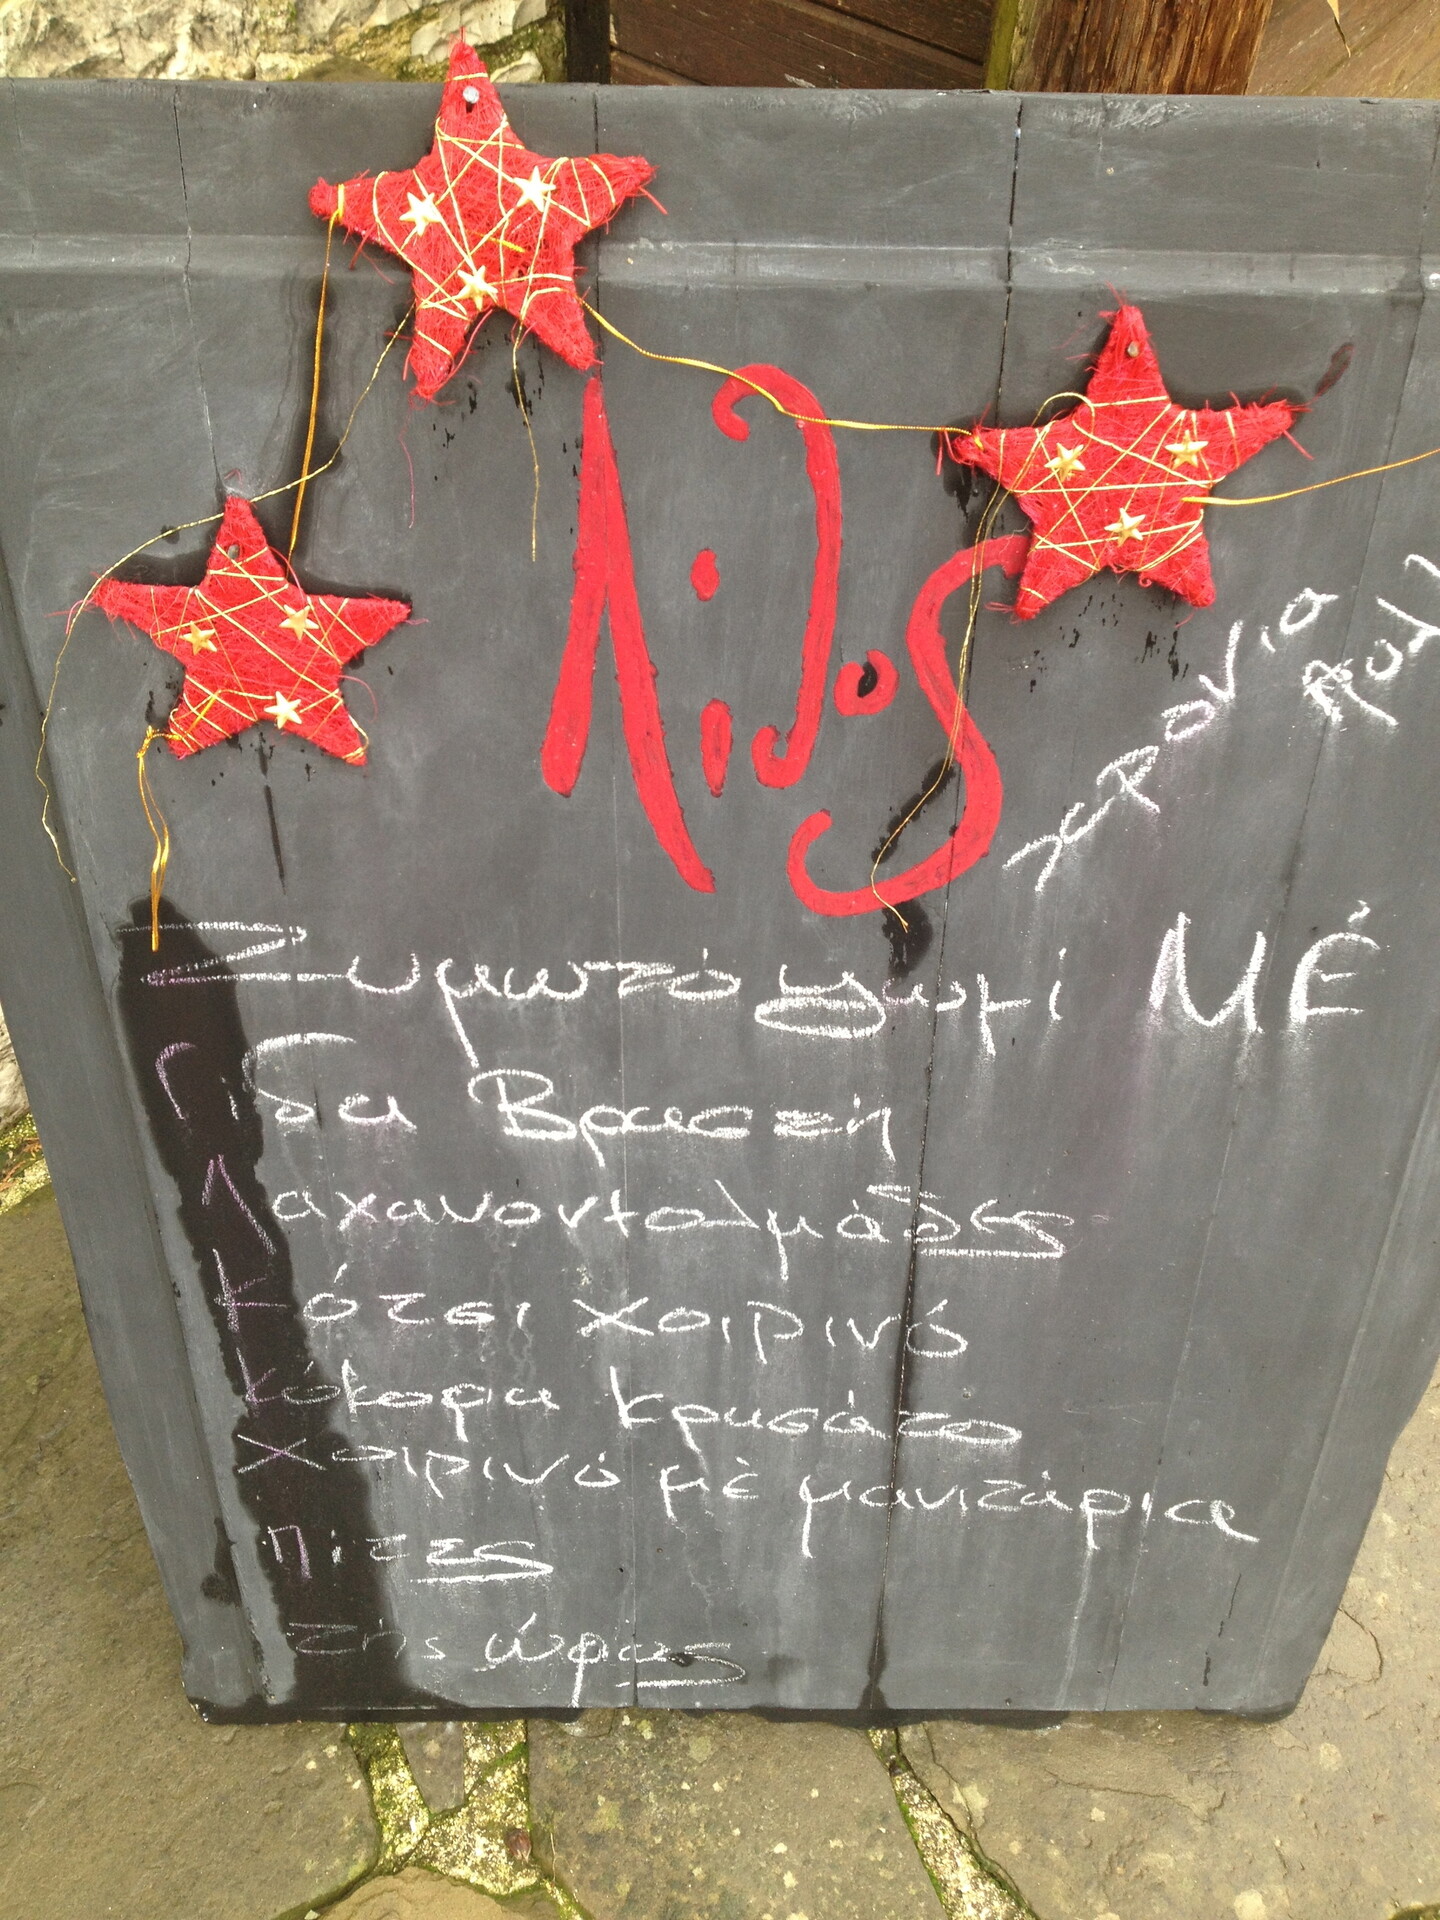 Λιθος
χρονια
Πολ
Ζυμωτό ψωμί ΜΈ
Γίδα Βραστή
Λαχανοντολμάδες
Κότσι χοιρινό
Κόκορα κρασάτο
Χοιρινό μέ μανιτάρια
Πίτες
τής ώρας